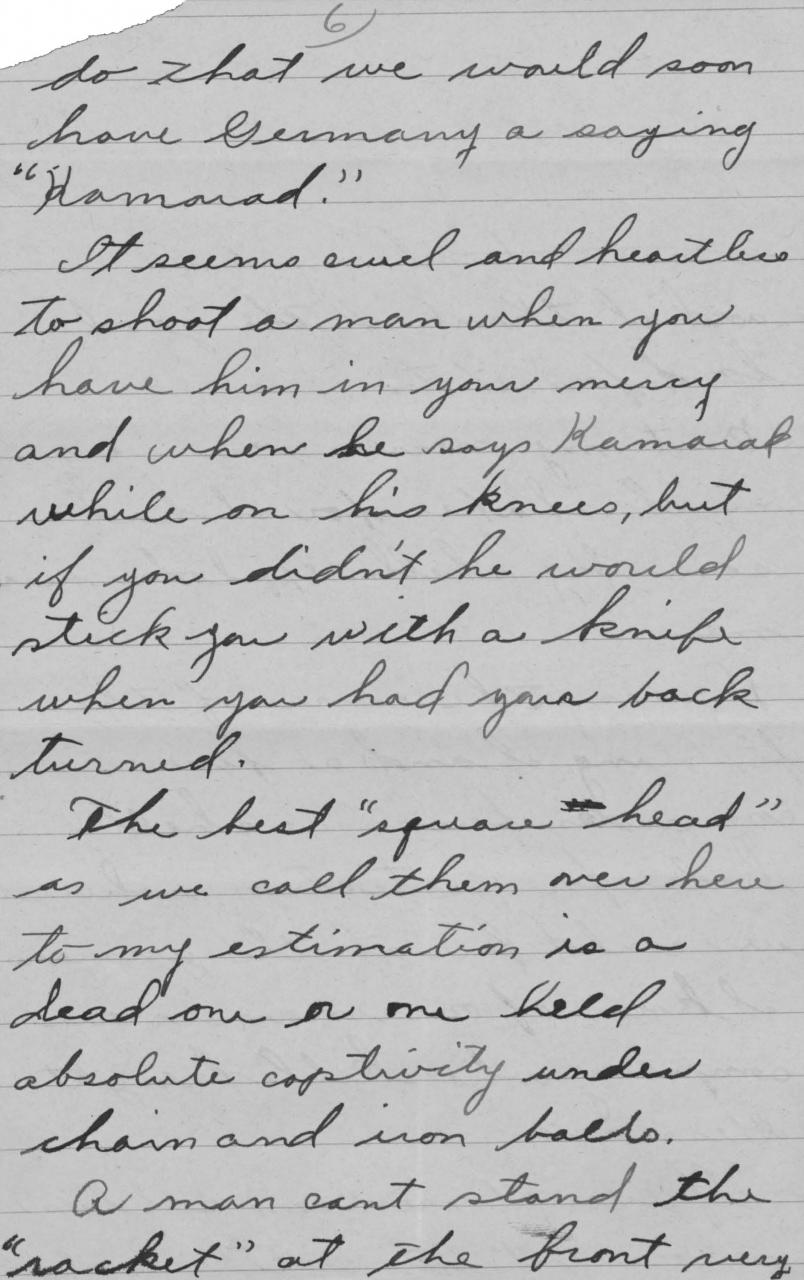 6)
do that we would soon
have Germany a saying
"Kamarad."
It seems cruel and heartless
to shoot a man when you
have him in your mercy
and when he says Kamarad
while on his knees, but
if you didn't he would
stick you with a knife
when you had your back
turned.
The best "square head"
as we call them over here
to my estimation is a
dead one or one held
absolute captivity under
chain and iron balls.
A man cant stand the
"racket" at the front very